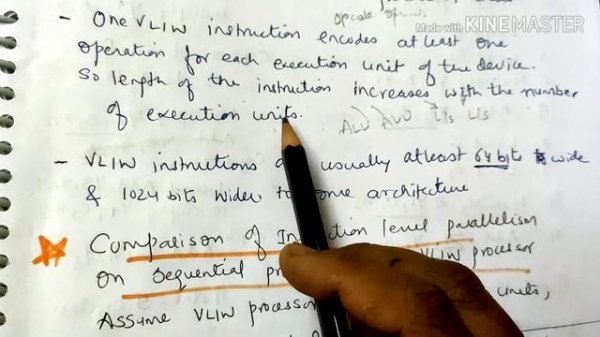 Opcode
Made with KINEMASTER
- One VLIW instruction encodes at least one
operation for each execution unit of the device.
So length of the instruction increases with the number
of execution units.
ALU ALU L/s L/s
- VLIW instructions usually atleast 64 bits wide
& 1024 bits wider to some architecture
Comparison of level parallelism
on sequential VLIW processor
Assume VLIW processor units,